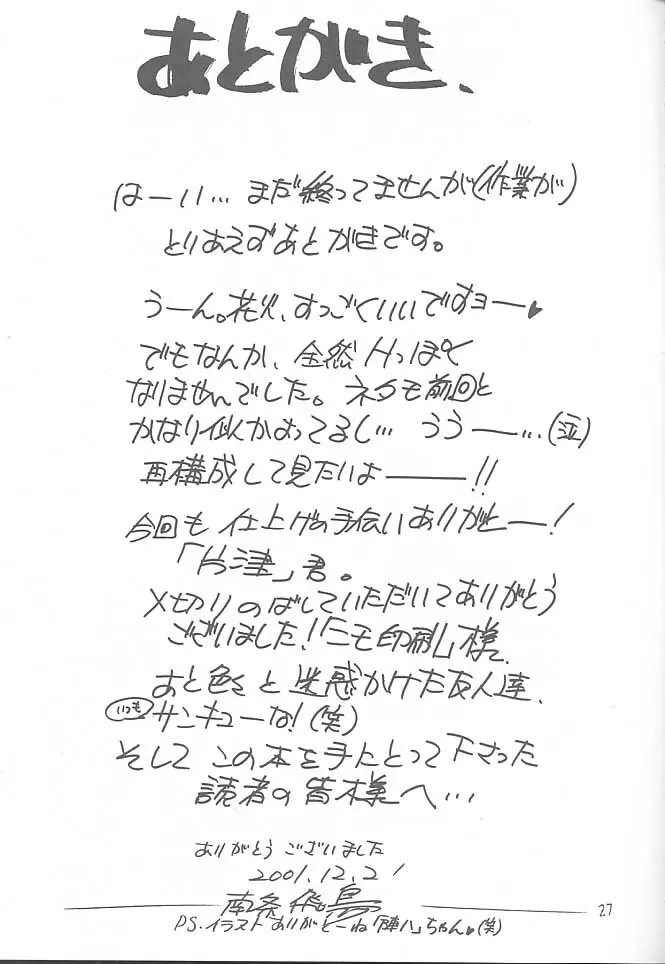 あとがき、
はーい… まだ終ってませんが(作業が)
とりあえずあとがきです。
うーん。花火、すっごくいいですョー♥
でもなんか、全然Hっぽく
なりませんでした。ネタも前回と
かなり似かよってるし… うう ー…(泣)
再構成して見たいよ――!!
今回も 仕上げの手伝いありがとー!
「片津」君。
〆切りのばしていただいてありがとう
ございました!「ニモ印刷」様。
あと色々と迷惑かけた友人達、
いつも サンキューな!(笑)
そして この本を手にとって下さった
読者の皆様へ…
ありがとう ございました
2001.12.21
南条飛鳥
27
PS.イラスト ありがとーね「陣八」ちゃん♥(笑)